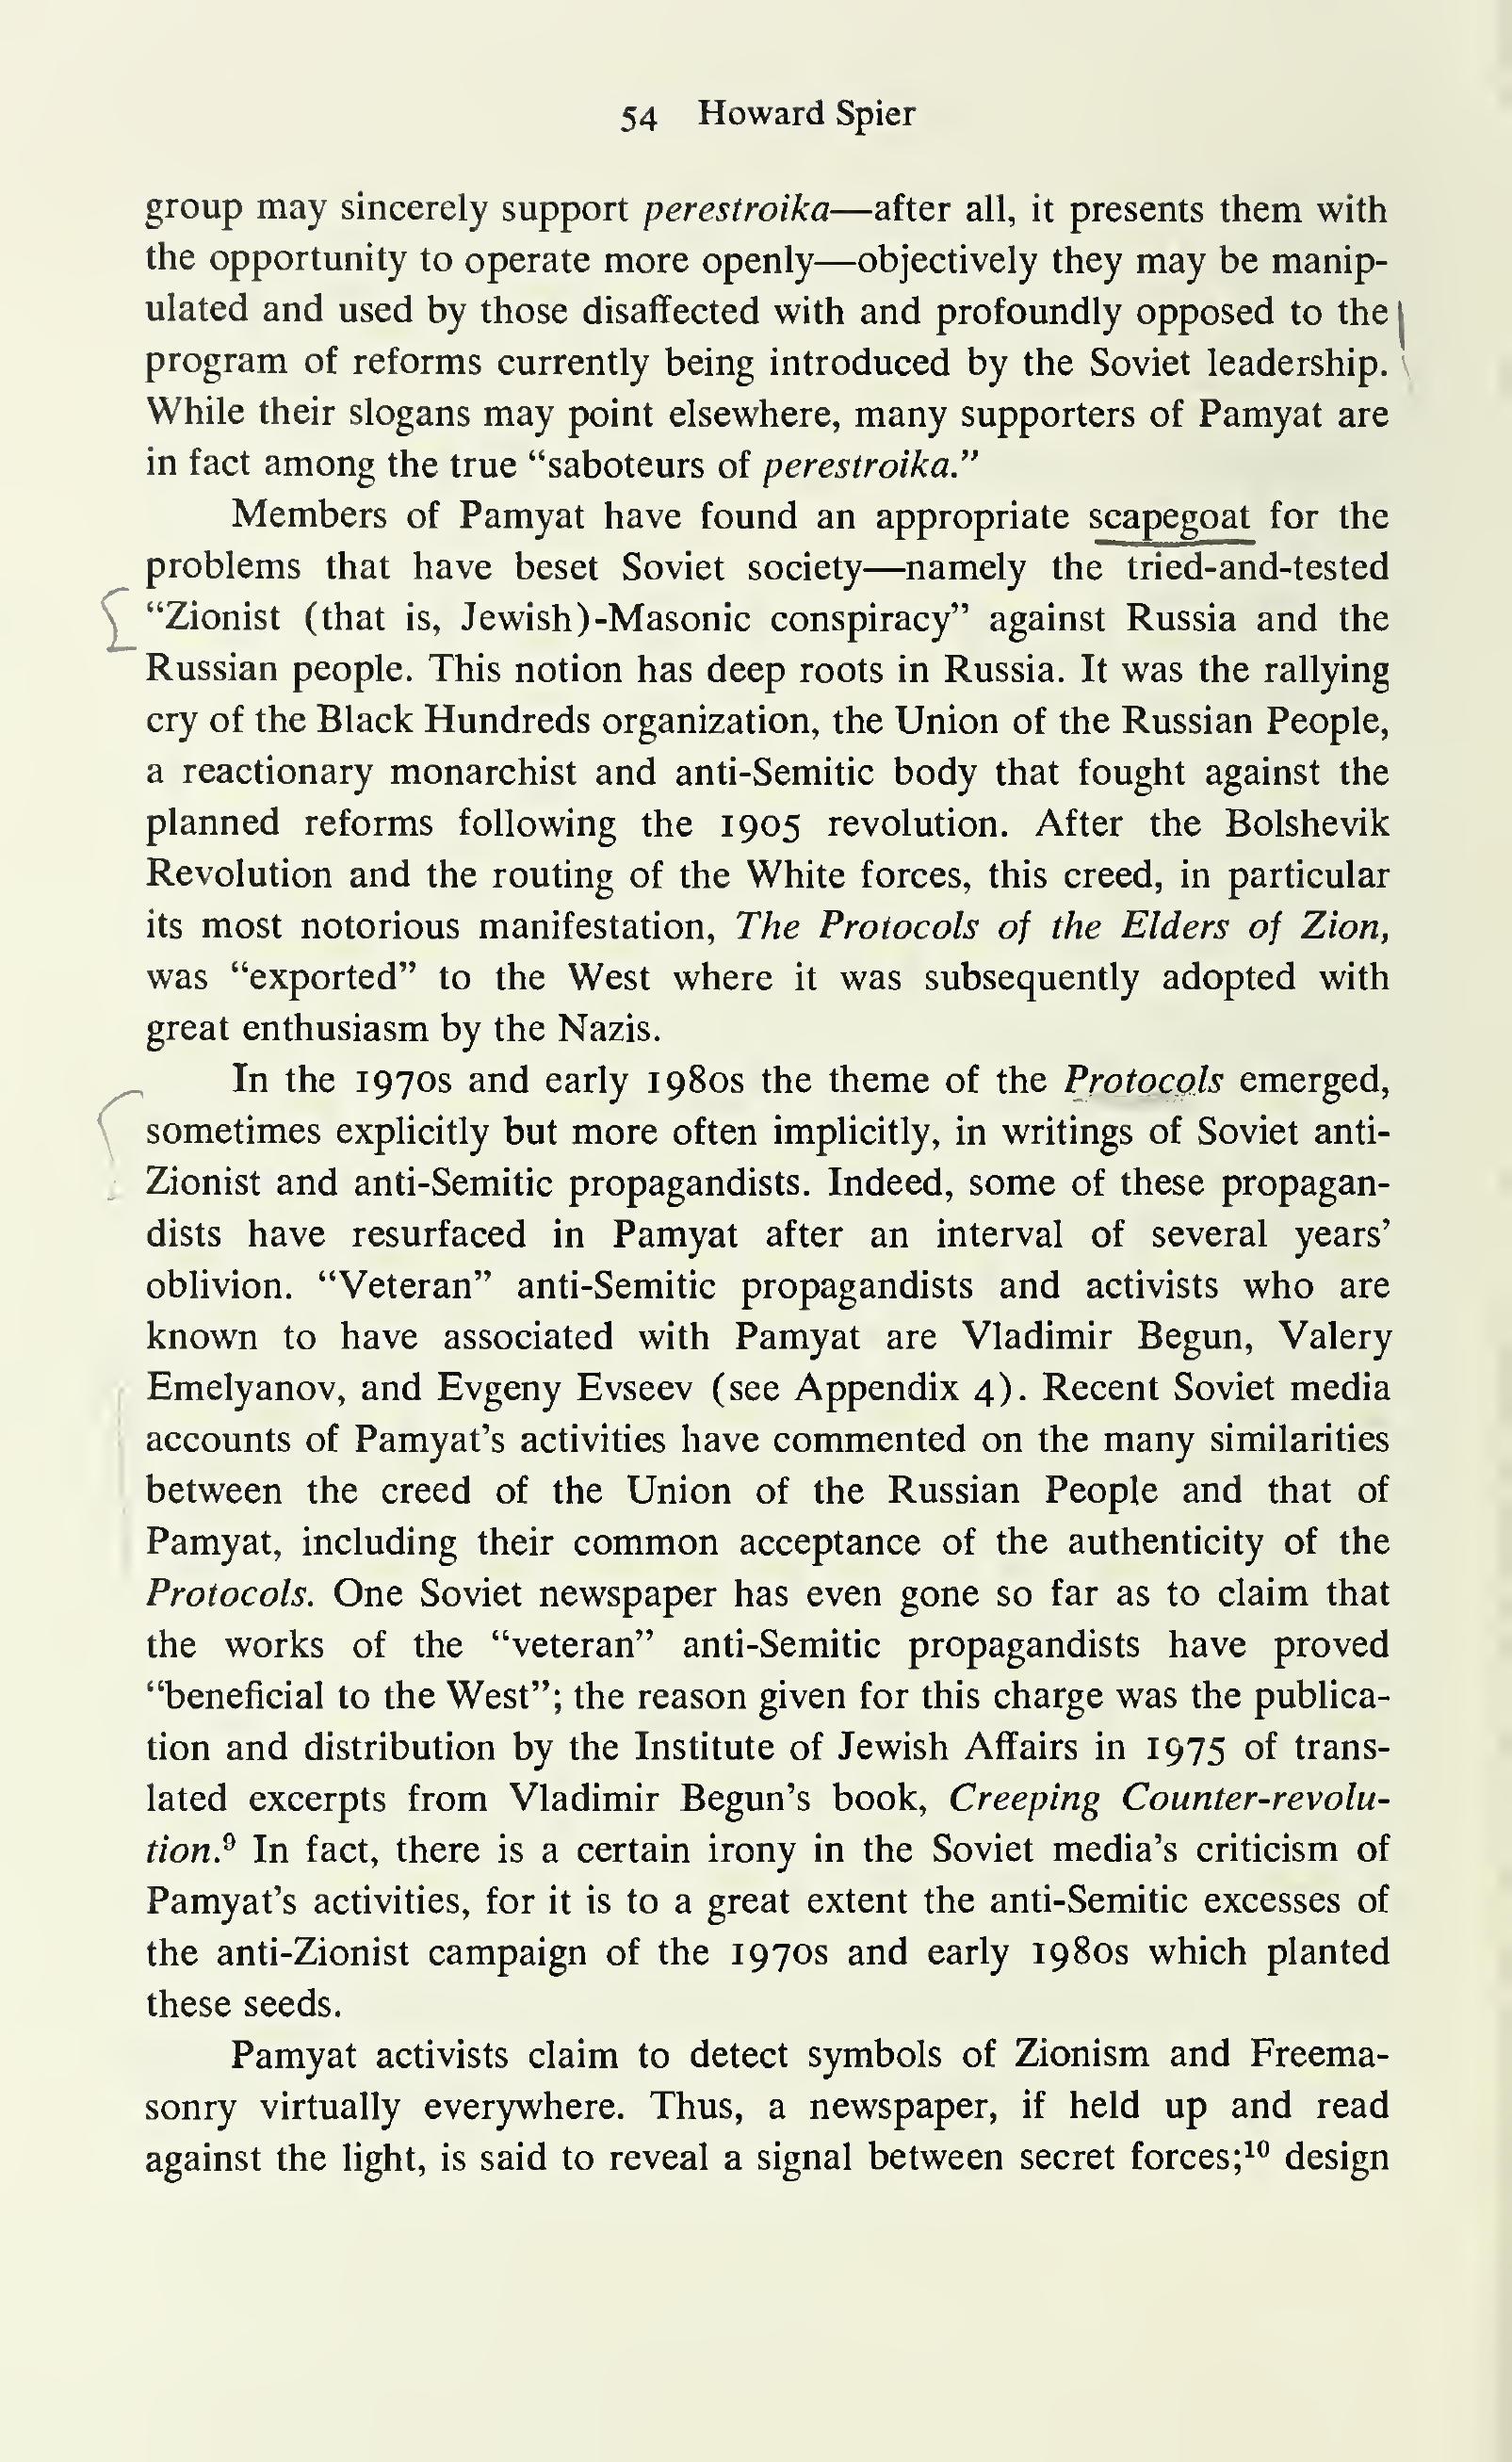 54 Howard Spier
group may sincerely support perestroika—after all, it presents them with
the opportunity to operate more openly—objectively they may be manip-
ulated and used by those disaffected with and profoundly opposed to the
program of reforms currently being introduced by the Soviet leadership.
While their slogans may point elsewhere, many supporters of Pamyat are
in fact among the true “saboteurs of perestroika.”
Members of Pamyat have found an appropriate scapegoat for the
problems that have beset Soviet society—namely the tried-and-tested
“Zionist (that is, Jewish)-Masonic conspiracy” against Russia and the
Russian people. This notion has deep roots in Russia. It was the rallying
cry of the Black Hundreds organization, the Union of the Russian People,
a reactionary monarchist and anti-Semitic body that fought against the
planned reforms following the 1905 revolution. After the Bolshevik
Revolution and the routing of the White forces, this creed, in particular
its most notorious manifestation, The Protocols of the Elders of Zion,
was “exported” to the West where it was subsequently adopted with
great enthusiasm by the Nazis.
In the 1970s and early 1980s the theme of the Protocols emerged,
sometimes explicitly but more often implicitly, in writings of Soviet anti-
Zionist and anti-Semitic propagandists. Indeed, some of these propagan-
dists have resurfaced in Pamyat after an interval of several years’
oblivion. “Veteran” anti-Semitic propagandists and activists who are
known to have associated with Pamyat are Vladimir Begun, Valery
Emelyanov, and Evgeny Evseev (see Appendix 4). Recent Soviet media
accounts of Pamyat’s activities have commented on the many similarities
between the creed of the Union of the Russian People and that of
Pamyat, including their common acceptance of the authenticity of the
Protocols. One Soviet newspaper has even gone so far as to claim that
the works of the “veteran” anti-Semitic propagandists have proved
“beneficial to the West”; the reason given for this charge was the publica-
tion and distribution by the Institute of Jewish Affairs in 1975 of trans-
lated excerpts from Vladimir Begun’s book, Creeping Counter-revolu-
tion.⁹ In fact, there is a certain irony in the Soviet media’s criticism of
Pamyat’s activities, for it is to a great extent the anti-Semitic excesses of
the anti-Zionist campaign of the 1970s and early 1980s which planted
these seeds.
Pamyat activists claim to detect symbols of Zionism and Freema-
sonry virtually everywhere. Thus, a newspaper, if held up and read
against the light, is said to reveal a signal between secret forces;¹⁰ design